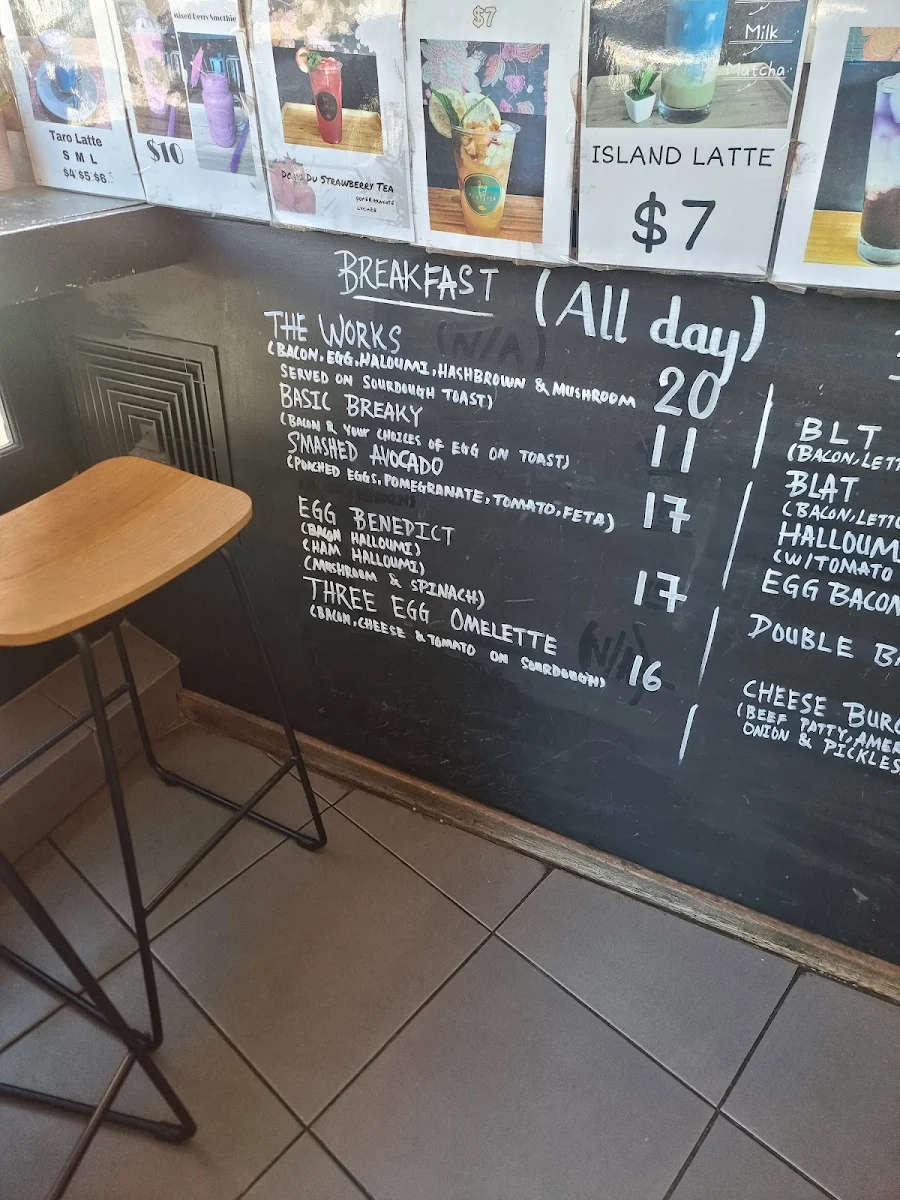 Mixed Berry Smothie
$7
Milk
Matcha
Taro Latte
S M L
$4 $5 $6
$10
Strawberry Tea
POMEGRANATE
LYCHEE
ISLAND LATTE
$7
BREAKFAST (All day)
THE WORKS (N/A)
(BACON, EGG, HALOUMI, HASHBROWN & MUSHROOM
SERVED ON SOURDOUGH TOAST) 20
BASIC BREAKY
(BACON & YOUR CHOICES OF EGG ON TOAST) 11
SMASHED AVOCADO
(POACHED EGGS, POMEGRANATE, TOMATO, FETA) 17
EGG BENEDICT
(BACON HALLOUMI)
(HAM HALLOUMI)
(MUSHROOM & SPINACH) 17
THREE EGG OMELETTE (N/A)
(BACON, CHEESE & TOMATO ON SOURDOUGH) 16
BLT
(BACON, LETT
BLAT
(BACON, LETTU
HALLOUM
(W/TOMATO
EGG BACON
DOUBLE BA
CHEESE BURG
(BEEF PATTY, AMER
ONION & PICKLES